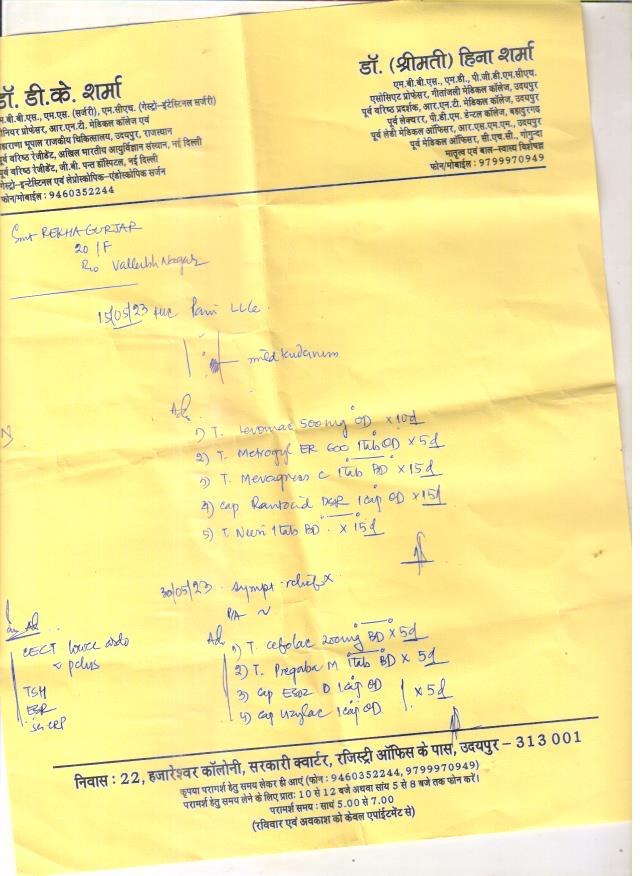 डॉ. डी.के. शर्मा
एम.बी.बी.एस., एम.एस. (सर्जरी), एम.सीएच. (गेस्ट्रो-इंटेस्टिनल सर्जरी)
सीनियर प्रोफेसर, आर.एन.टी. मेडिकल कॉलेज एवं
महाराणा भूपाल राजकीय चिकित्सालय, उदयपुर, राजस्थान
पूर्व वरिष्ठ रेजीडेंट, अखिल भारतीय आयुर्विज्ञान संस्थान, नई दिल्ली
पूर्व वरिष्ठ रेजीडेंट, जी.बी. पन्त हॉस्पिटल, नई दिल्ली
गेस्ट्रो-इन्टेस्टिनल एवं लेप्रोस्कोपिक-एंडोस्कोपिक सर्जन
फोन/मोबाईल : 9460352244
डॉ. (श्रीमती) हिना शर्मा
एम.बी.बी.एस., एम.डी., पी.जी.डी.एम.सीएच.
एसोसिएट प्रोफेसर, गीतांजली मेडिकल कॉलेज, उदयपुर
पूर्व वरिष्ठ प्रदर्शक, आर.एन.टी. मेडिकल कॉलेज, उदयपुर
पूर्व लेक्चरर, पी.डी.एम. डेन्टल कॉलेज, बहादुरगढ़
पूर्व लेडी मेडिकल ऑफिसर, आर.एस.एम.एम., उदयपुर
पूर्व मेडिकल ऑफिसर, सी.एच.सी., गोगुन्दा
मातृत्व एवं बाल-स्वास्थ्य विशेषज्ञ
फोन/मोबाईल : 9799970949
Smt REKHA GURJAR
20/F
R/o Vallabh Nagar
15/05/23 Pain
mild tenderness
Adv.
1) T. Levomac 500mg OD x 10d
2) T. Metrogyl ER 600 1tab OD x 5d
3) T. Mevagress C 1tab BD x 15d
4) Cap Rantocid DSR 1cap OD x 15d
5) T. Neeri 1tab BD x 15d
30/05/23 Sympt. relief x
P/A ~
Adv
1) T. Cefolac 200mg BD x 5d
2) T. Pregaba M 1tab BD x 5d
3) Cap ESOZ D 1cap OD
4) Cap Vizylac 1cap OD
x 5d
Adv
CECT lower abdo
pelvis
TSH
ESR
CRP
निवास : 22, हजारेश्वर कॉलोनी, सरकारी क्वार्टर, रजिस्ट्री ऑफिस के पास, उदयपुर - 313 001
कृपया परामर्श हेतु समय लेकर ही आएं (फोन : 9460352244, 9799970949)
परामर्श हेतु समय लेने के लिए प्रातः 10 से 12 बजे अथवा सांय 5 से 8 बजे तक फोन करें।
परामर्श समय : सायं 5.00 से 7.00
(रविवार एवं अवकाश को केवल एपाईंटमेंट से)